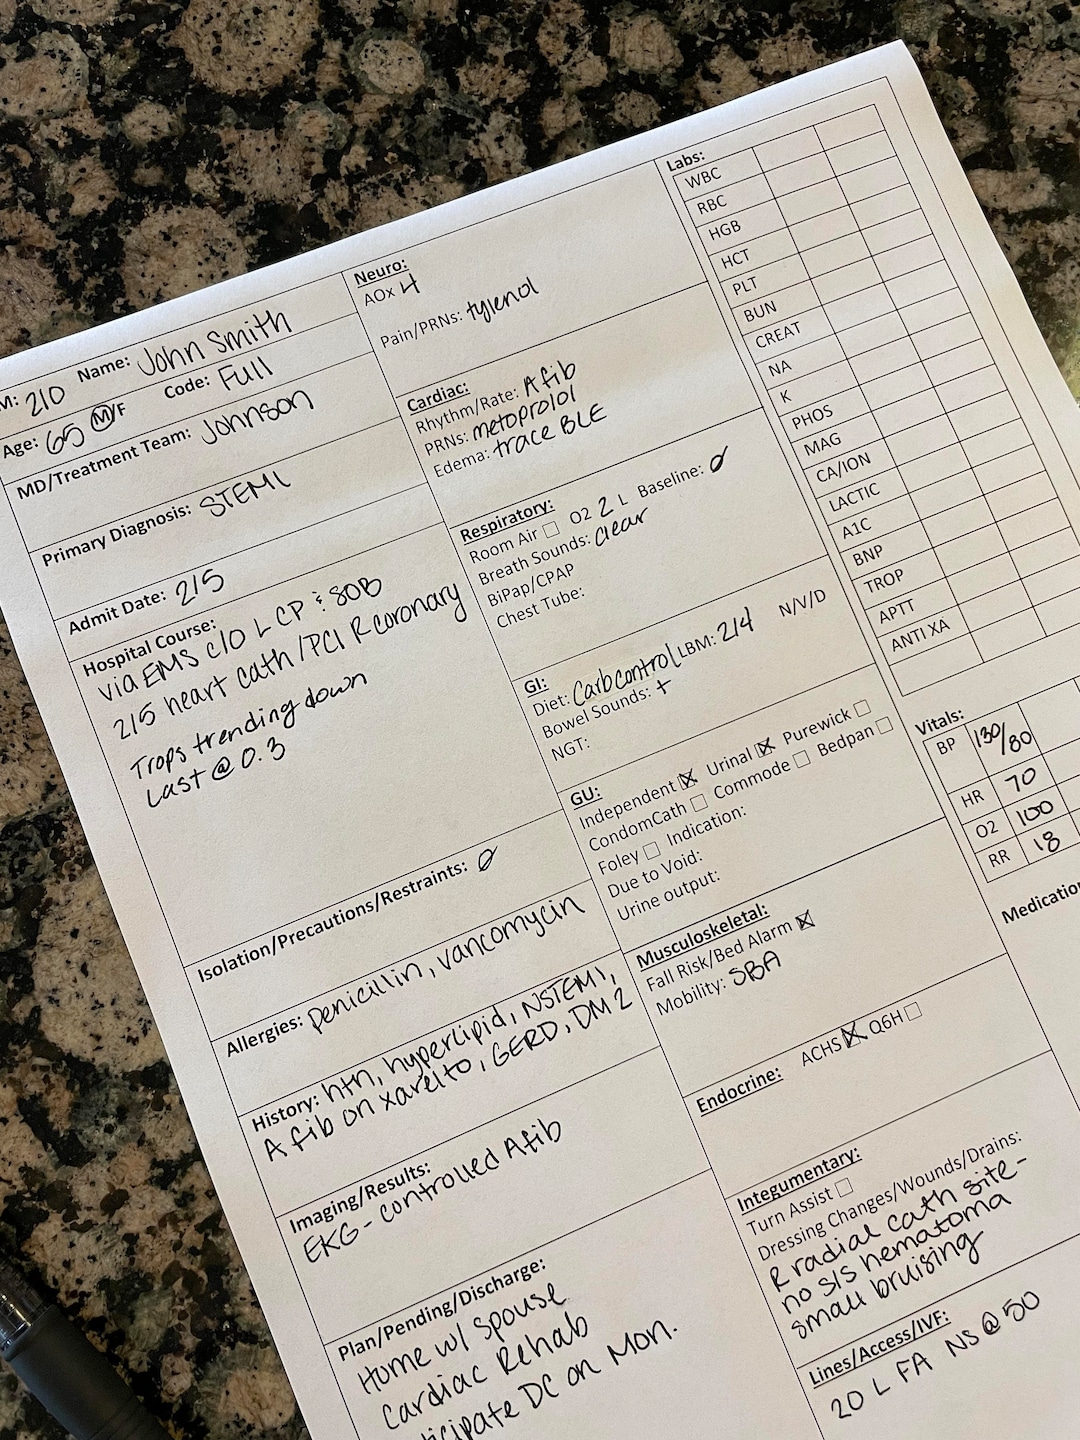 M: 210 Name: John Smith
Age: 65 M/F Code: Full
MD/Treatment Team: Johnson
Primary Diagnosis: STEMI
Admit Date: 2/5
Hospital Course:
via EMS c/o L CP & SOB
2/5 heart cath/PCI R coronary
Trops trending down
Last @ 0.3
Isolation/Precautions/Restraints: Ø
Allergies: penicillin, vancomycin
History: htn, hyperlipid, NSTEMI,
Afib on xarelto, GERD, DM2
Imaging/Results:
EKG - controlled Afib
Plan/Pending/Discharge:
Home w/ spouse
Cardiac Rehab
ticipate DC on Mon.
Neuro:
AOx 4
Pain/PRNs: tylenol
Cardiac:
Rhythm/Rate: Afib
PRNs: metoprolol
Edema: trace BLE
Respiratory:
Room Air ☐ O2 2 L Baseline: Ø
Breath Sounds: clear
BiPap/CPAP
Chest Tube:
GI:
Diet: Carb control LBM: 2/4 N/V/D
Bowel Sounds: +
NGT:
GU:
Independent ☒ Urinal ☒ Purewick ☐
CondomCath ☐ Commode ☐ Bedpan ☐
Foley ☐ Indication:
Due to Void:
Urine output:
Musculoskeletal:
Fall Risk/Bed Alarm ☒
Mobility: SBA
Endocrine: ACHS ☒ Q6H ☐
Integumentary:
Turn Assist ☐
Dressing Changes/Wounds/Drains:
R radial cath site -
no s/s hematoma
small bruising
Lines/Access/IVF:
20 L FA NS @ 50
Labs:
WBC
RBC
HGB
HCT
PLT
BUN
CREAT
NA
K
PHOS
MAG
CA/ION
LACTIC
A1C
BNP
TROP
APTT
ANTI XA
Vitals:
BP 130/80
HR 70
O2 100
RR 18
Medicatio